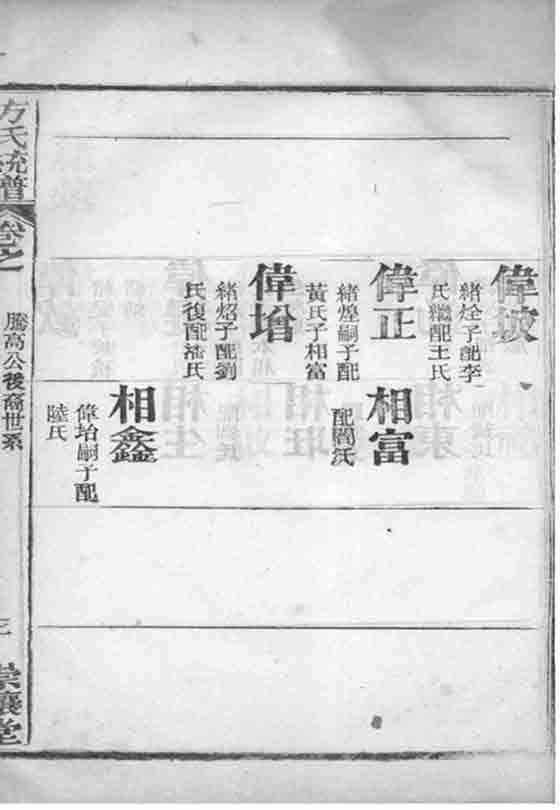 偉坡
緒烇子配李
氏繼配王氏
偉正
緒煌嗣子配
黃氏子相富
偉增
緒炤子配劉
氏復配潘氏
相富
配閻氏
相鑫
偉坮嗣子配
陸氏
方氏統譜
卷之一
騰高公後裔世系
崇讓堂